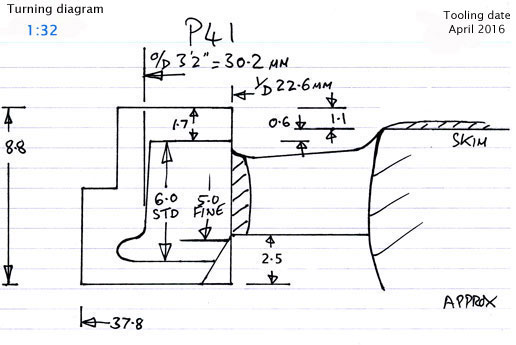 Turning diagram
1:32
P41
Tooling date
April 2016
O/D 3'2" = 30.2 MM
I/D 22.6 MM
1.7
0.6
1.1
8.8
SKIM
6.0
STD
5.0
FINE
2.5
APPROX
37.8